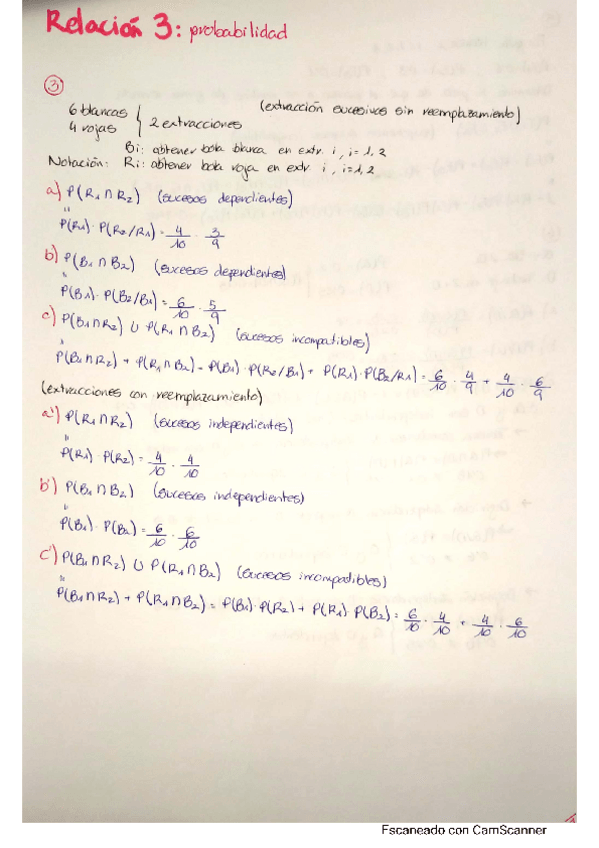 Relación 3: probabilidad
③
6 blancas
4 rojas } 2 extracciones (extracción sucesivas sin reemplazamiento)
Bi: obtener bola blanca en extr. i, i=1,2
Notación: Ri: obtener bola roja en extr. i, i=1,2
a) P(R₁∩R₂) (sucesos dependientes)
"
P(R₁)·P(R₂/R₁) = 4/10 · 3/9
b) P(B₁∩B₂) (sucesos dependientes)
"
P(B₁)·P(B₂/B₁) = 6/10 · 5/9
c) P(B₁∩R₂) ∪ P(R₁∩B₂) (sucesos incompatibles)
"
P(B₁∩R₂) + P(R₁∩B₂) = P(B₁)·P(R₂/B₁) + P(R₁)·P(B₂/R₁) = 6/10 · 4/9 + 4/10 · 6/9
(extracciones con reemplazamiento)
a') P(R₁∩R₂) (sucesos independientes)
"
P(R₁)·P(R₂) = 4/10 · 4/10
b') P(B₁∩B₂) (sucesos independientes)
"
P(B₁)·P(B₂) = 6/10 · 6/10
c') P(B₁∩R₂) ∪ P(R₁∩B₂) (sucesos incompatibles)
"
P(B₁∩R₂) + P(R₁∩B₂) = P(B₁)·P(R₂) + P(R₁)·P(B₂) = 6/10 · 4/10 + 4/10 · 6/10
Escaneado con CamScanner